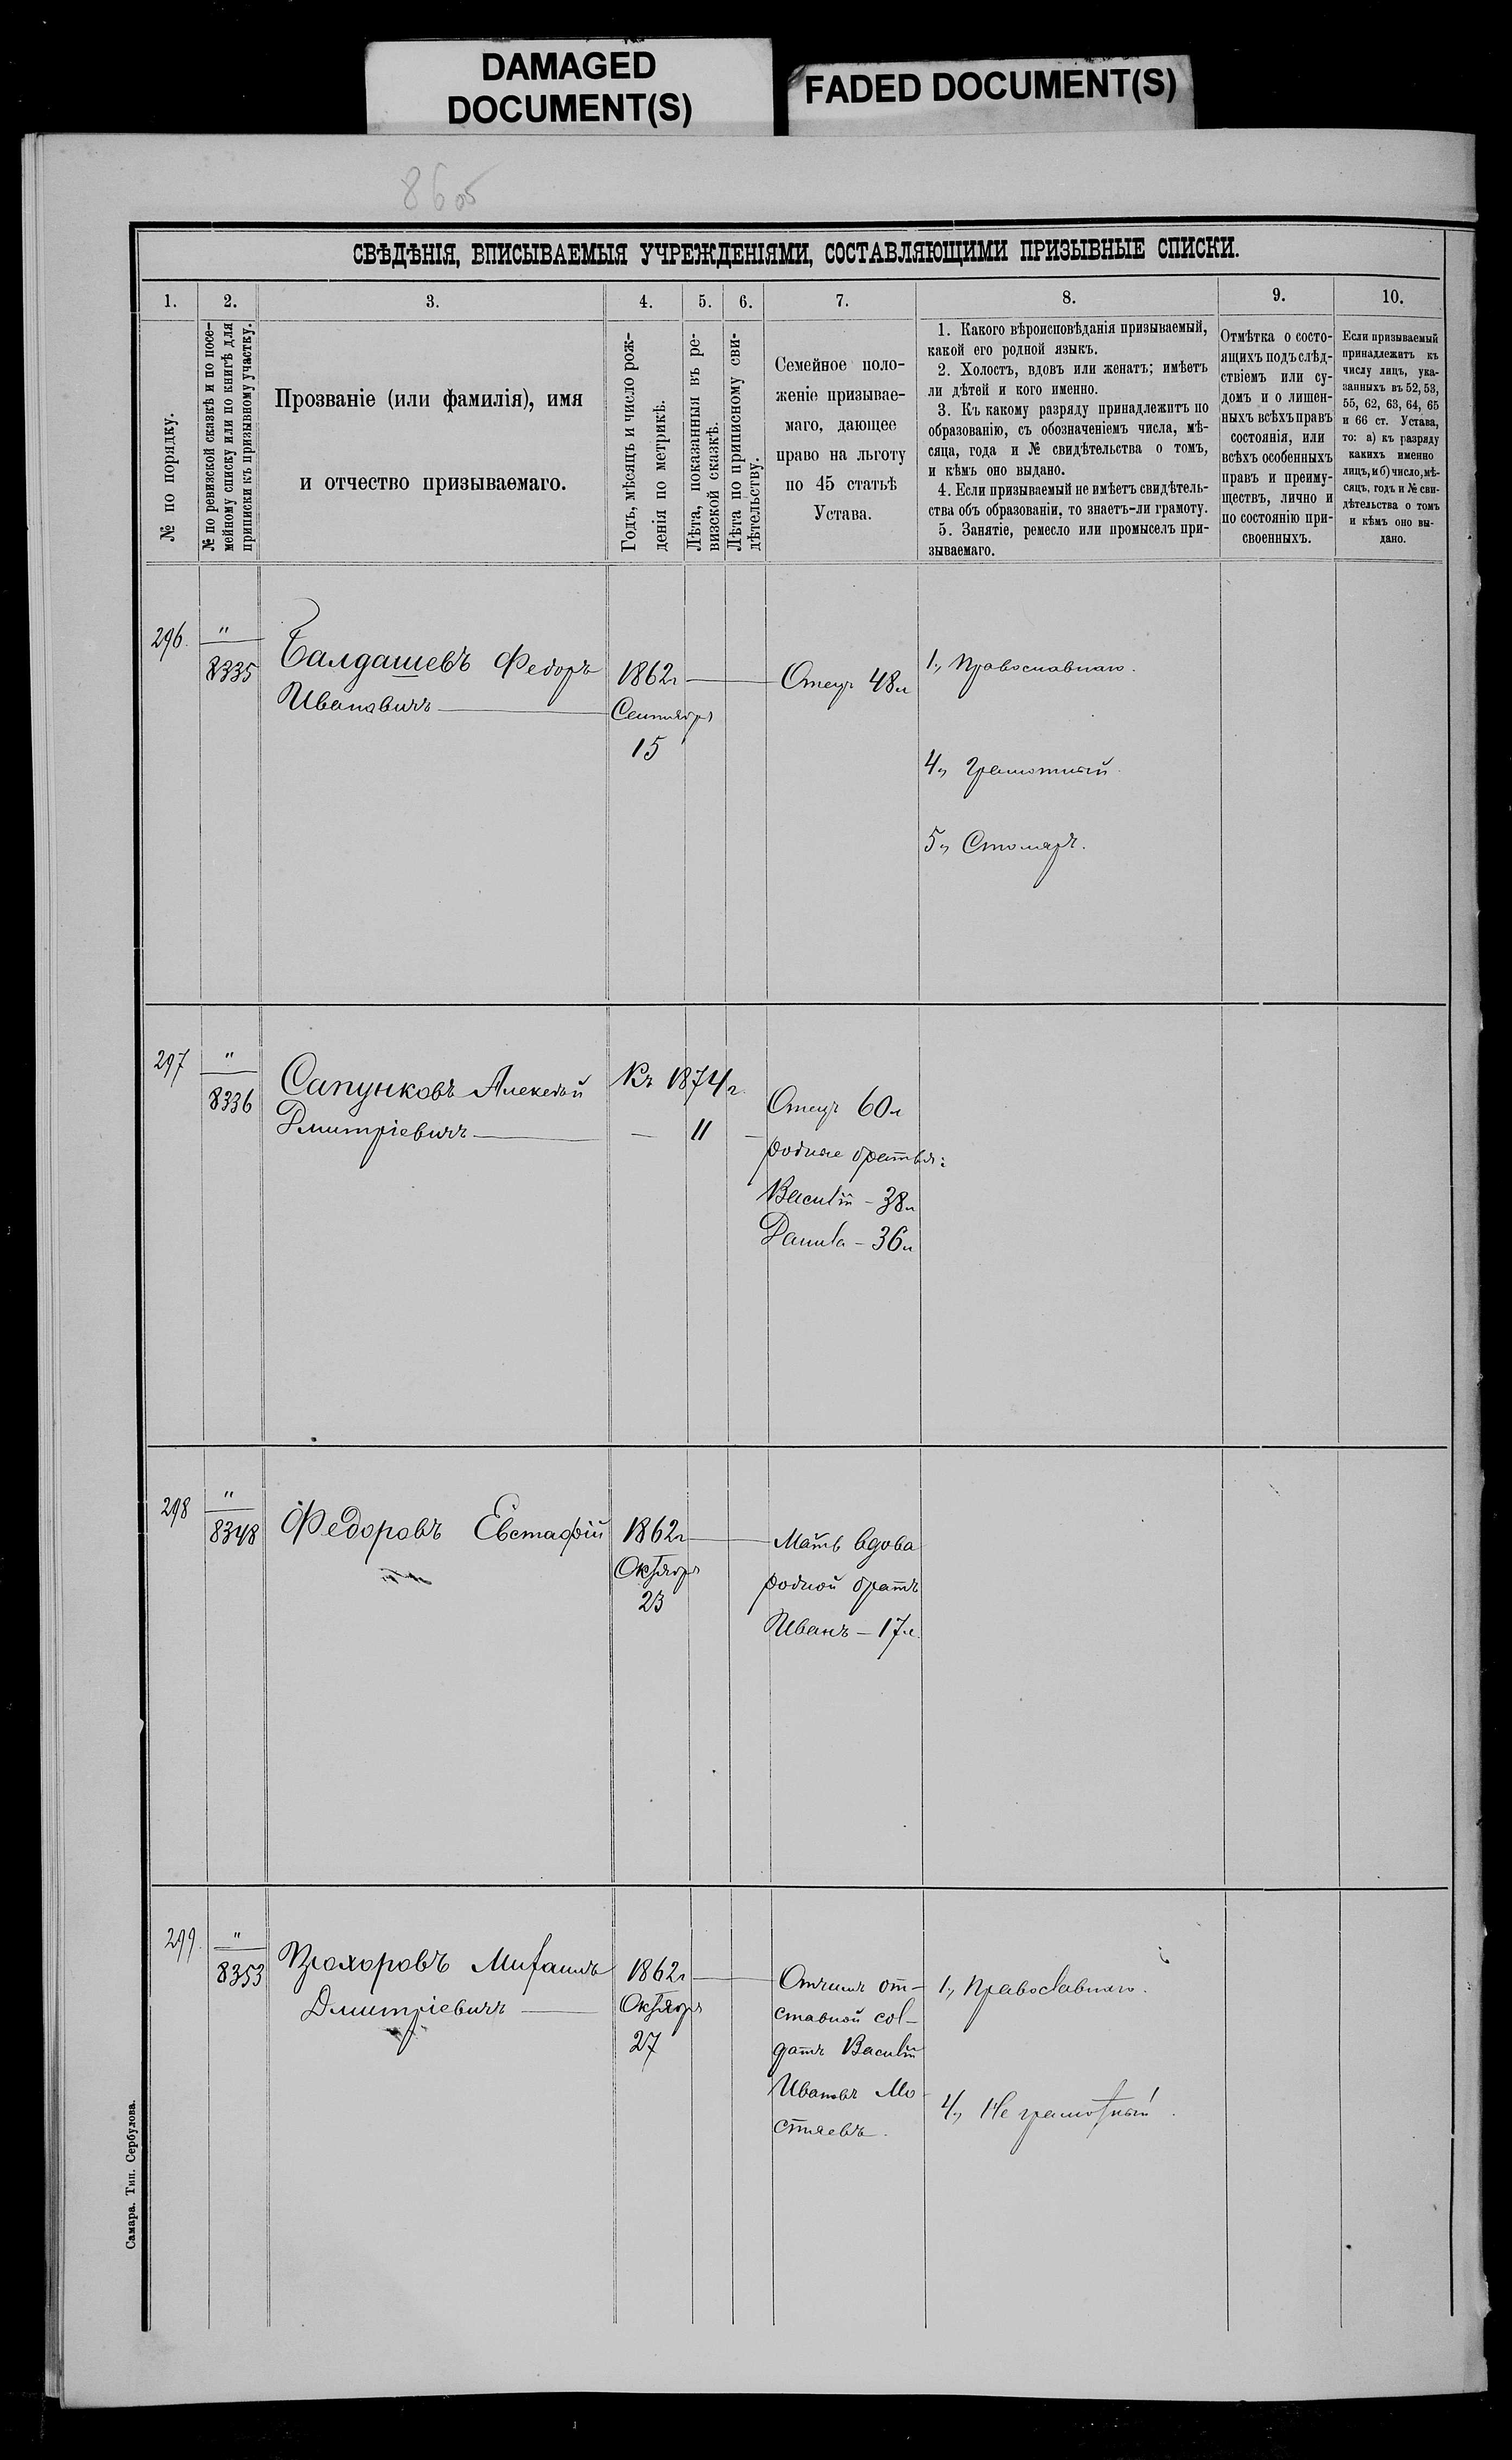 DAMAGED
DOCUMENT(S)
FADED DOCUMENT(S)
8605
СВѢДѢНІЯ, ВПИСЫВАЕМЫЯ УЧРЕЖДЕНІЯМИ, СОСТАВЛЯЮЩИМИ ПРИЗЫВНЫЕ СПИСКИ.
1.
2.
3.
4.
5.
6.
7.
8.
9.
10.
№ по порядку.
№ по ревизской сказкѣ и по посе-
мейному списку или по книгѣ для
приписки къ призывному участку.
Прозваніе (или фамилія), имя
и отчество призываемаго.
Годъ, мѣсяцъ и число рож-
денія по метрикѣ.
Лѣта, показанныя въ ре-
визской сказкѣ.
Лѣта по приписному сви-
дѣтельству.
Семейное поло-
женіе призывае-
маго, дающее
право на льготу
по 45 статьѣ
Устава.
1. Какого вѣроисповѣданія призываемый,
какой его родной языкъ.
2. Холостъ, вдовъ или женатъ; имѣетъ
ли дѣтей и кого именно.
3. Къ какому разряду принадлежитъ по
образованію, съ обозначеніемъ числа, мѣ-
сяца, года и № свидѣтельства о томъ,
и кѣмъ оно выдано.
4. Если призываемый не имѣетъ свидѣтель-
ства объ образованіи, то знаетъ-ли грамоту.
5. Занятіе, ремесло или промыселъ при-
зываемаго.
Отмѣтка о состо-
ящихъ подъ слѣд-
ствіемъ или су-
домъ и о лишен-
ныхъ всѣхъ правъ
состоянія, или
всѣхъ особенныхъ
правъ и преиму-
ществъ, лично и
по состоянію при-
своенныхъ.
Если призываемый
принадлежитъ къ
числу лицъ, ука-
занныхъ въ 52, 53,
55, 62, 63, 64, 65
и 66 ст. Устава,
то: а) къ разряду
какихъ именно
лицъ, и б) число, мѣ-
сяцъ, годъ и № сви-
дѣтельства о томъ
и кѣмъ оно вы-
дано.
296.
"
8335
Балдашевъ Федоръ
Ивановичъ
1862г
Сентября
15
Отецъ 48л
1., Православнаго.
4., Грамотный.
5., Столяръ.
297
"
8336
Сапунковъ Алексѣй
Дмитріевичъ
Къ 1874г.
— 11 —
Отецъ 60л
родные братья:
Василій – 38л
Данила – 36л
298
"
8348
Федоровъ Евстафій
1862г
Октября
23
Мать вдова
родной братъ
Иванъ – 17л.
299.
"
8353
Прохоровъ Михаилъ
Дмитріевичъ
1862г
Октября
27
Отчимъ от-
ставной сол-
датъ Василій
Ивановъ Мо-
стяевъ.
1., Православнаго.
4., Не грамотный.
Самара. Тип. Сербулова.